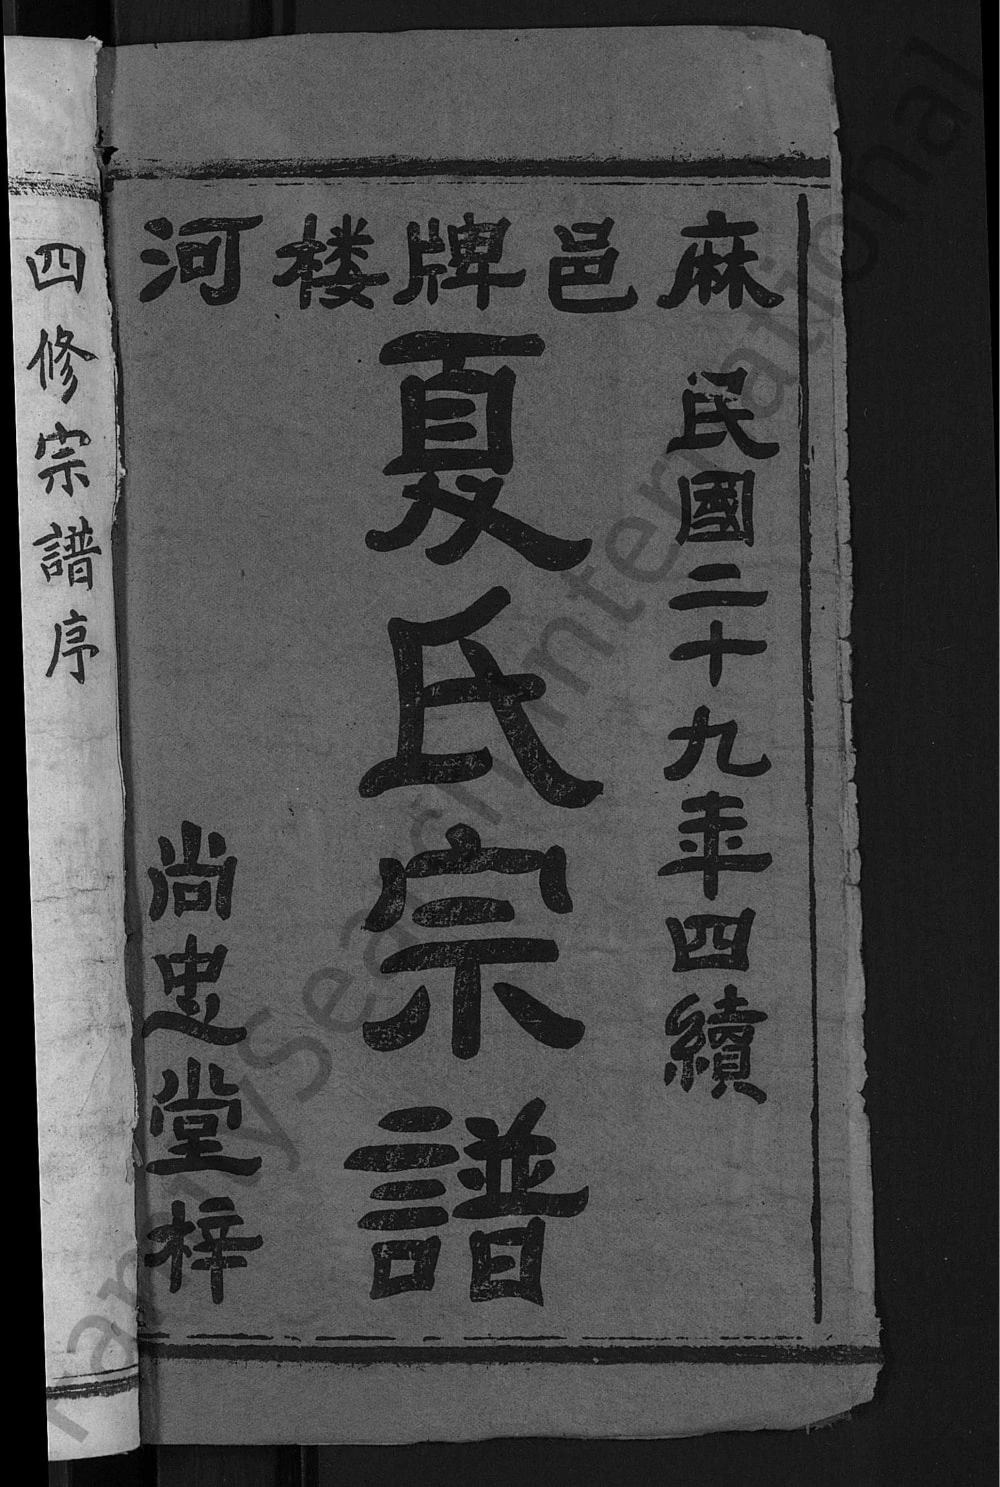 麻邑牌楼河
民國二十九年四續
夏氏宗譜
尚忠堂梓
四修宗譜序
FamilySearch International